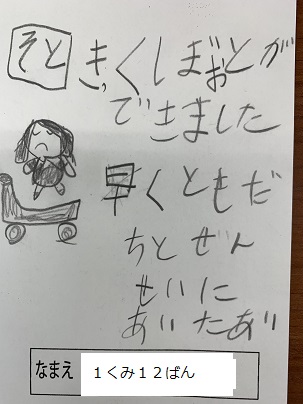 そと きっくしぼおとが
できました
早くともだ
ちとぜん
せいに
あいたあい
なまえ １くみ１２ばん